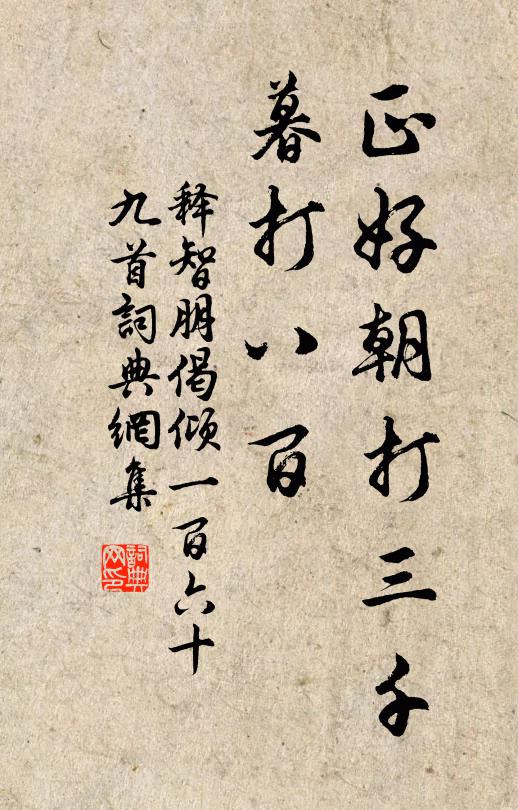 正好朝打三千
暮打八百
释智朋偈倾一百六十
九首詞典網集
詞典网印